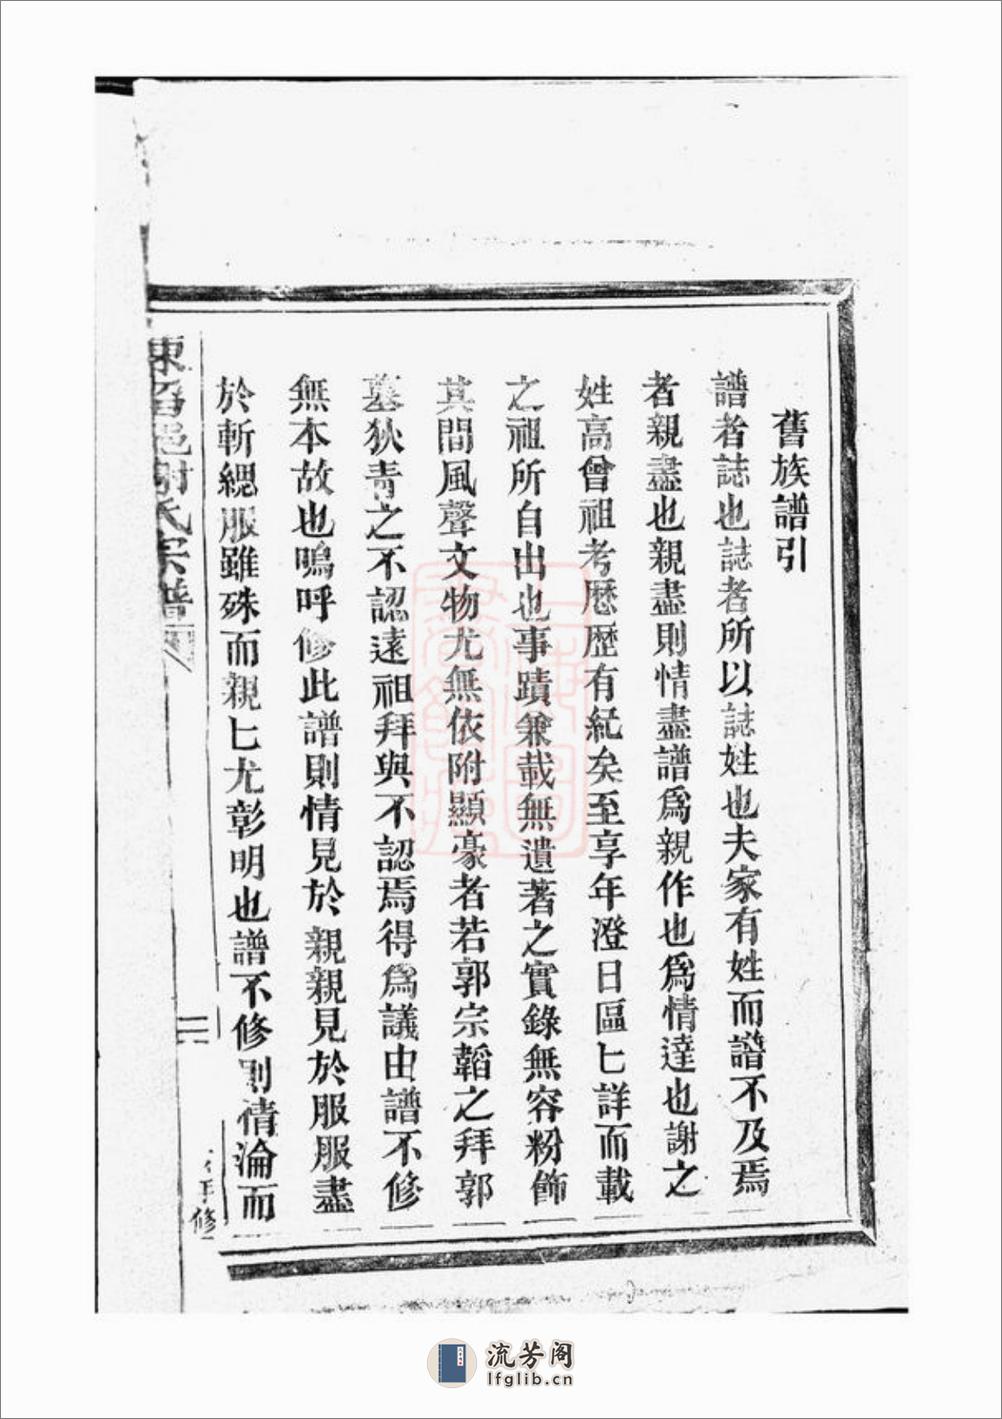 舊族譜引
譜者誌也誌者所以誌姓也夫家有姓而譜不及焉
者親盡也親盡則情盡譜爲親作也爲情達也謝之
姓高曾祖考厯歴有紀矣至享年澄日區匕詳而載
之祖所自出也事蹟兼載無遺著之實錄無容粉飾
其間風聲文物尤無依附顯豪者若郭宗韜之拜郭
墓狄青之不認遠祖拜與不認焉得爲議由譜不修
無本故也嗚呼修此譜則情見於親親見於服服盡
於斬緦服雖殊而親匕尤彰明也譜不修則情淪而
東 邑謝氏宗譜
二
修
流芳阁
lfglib.cn